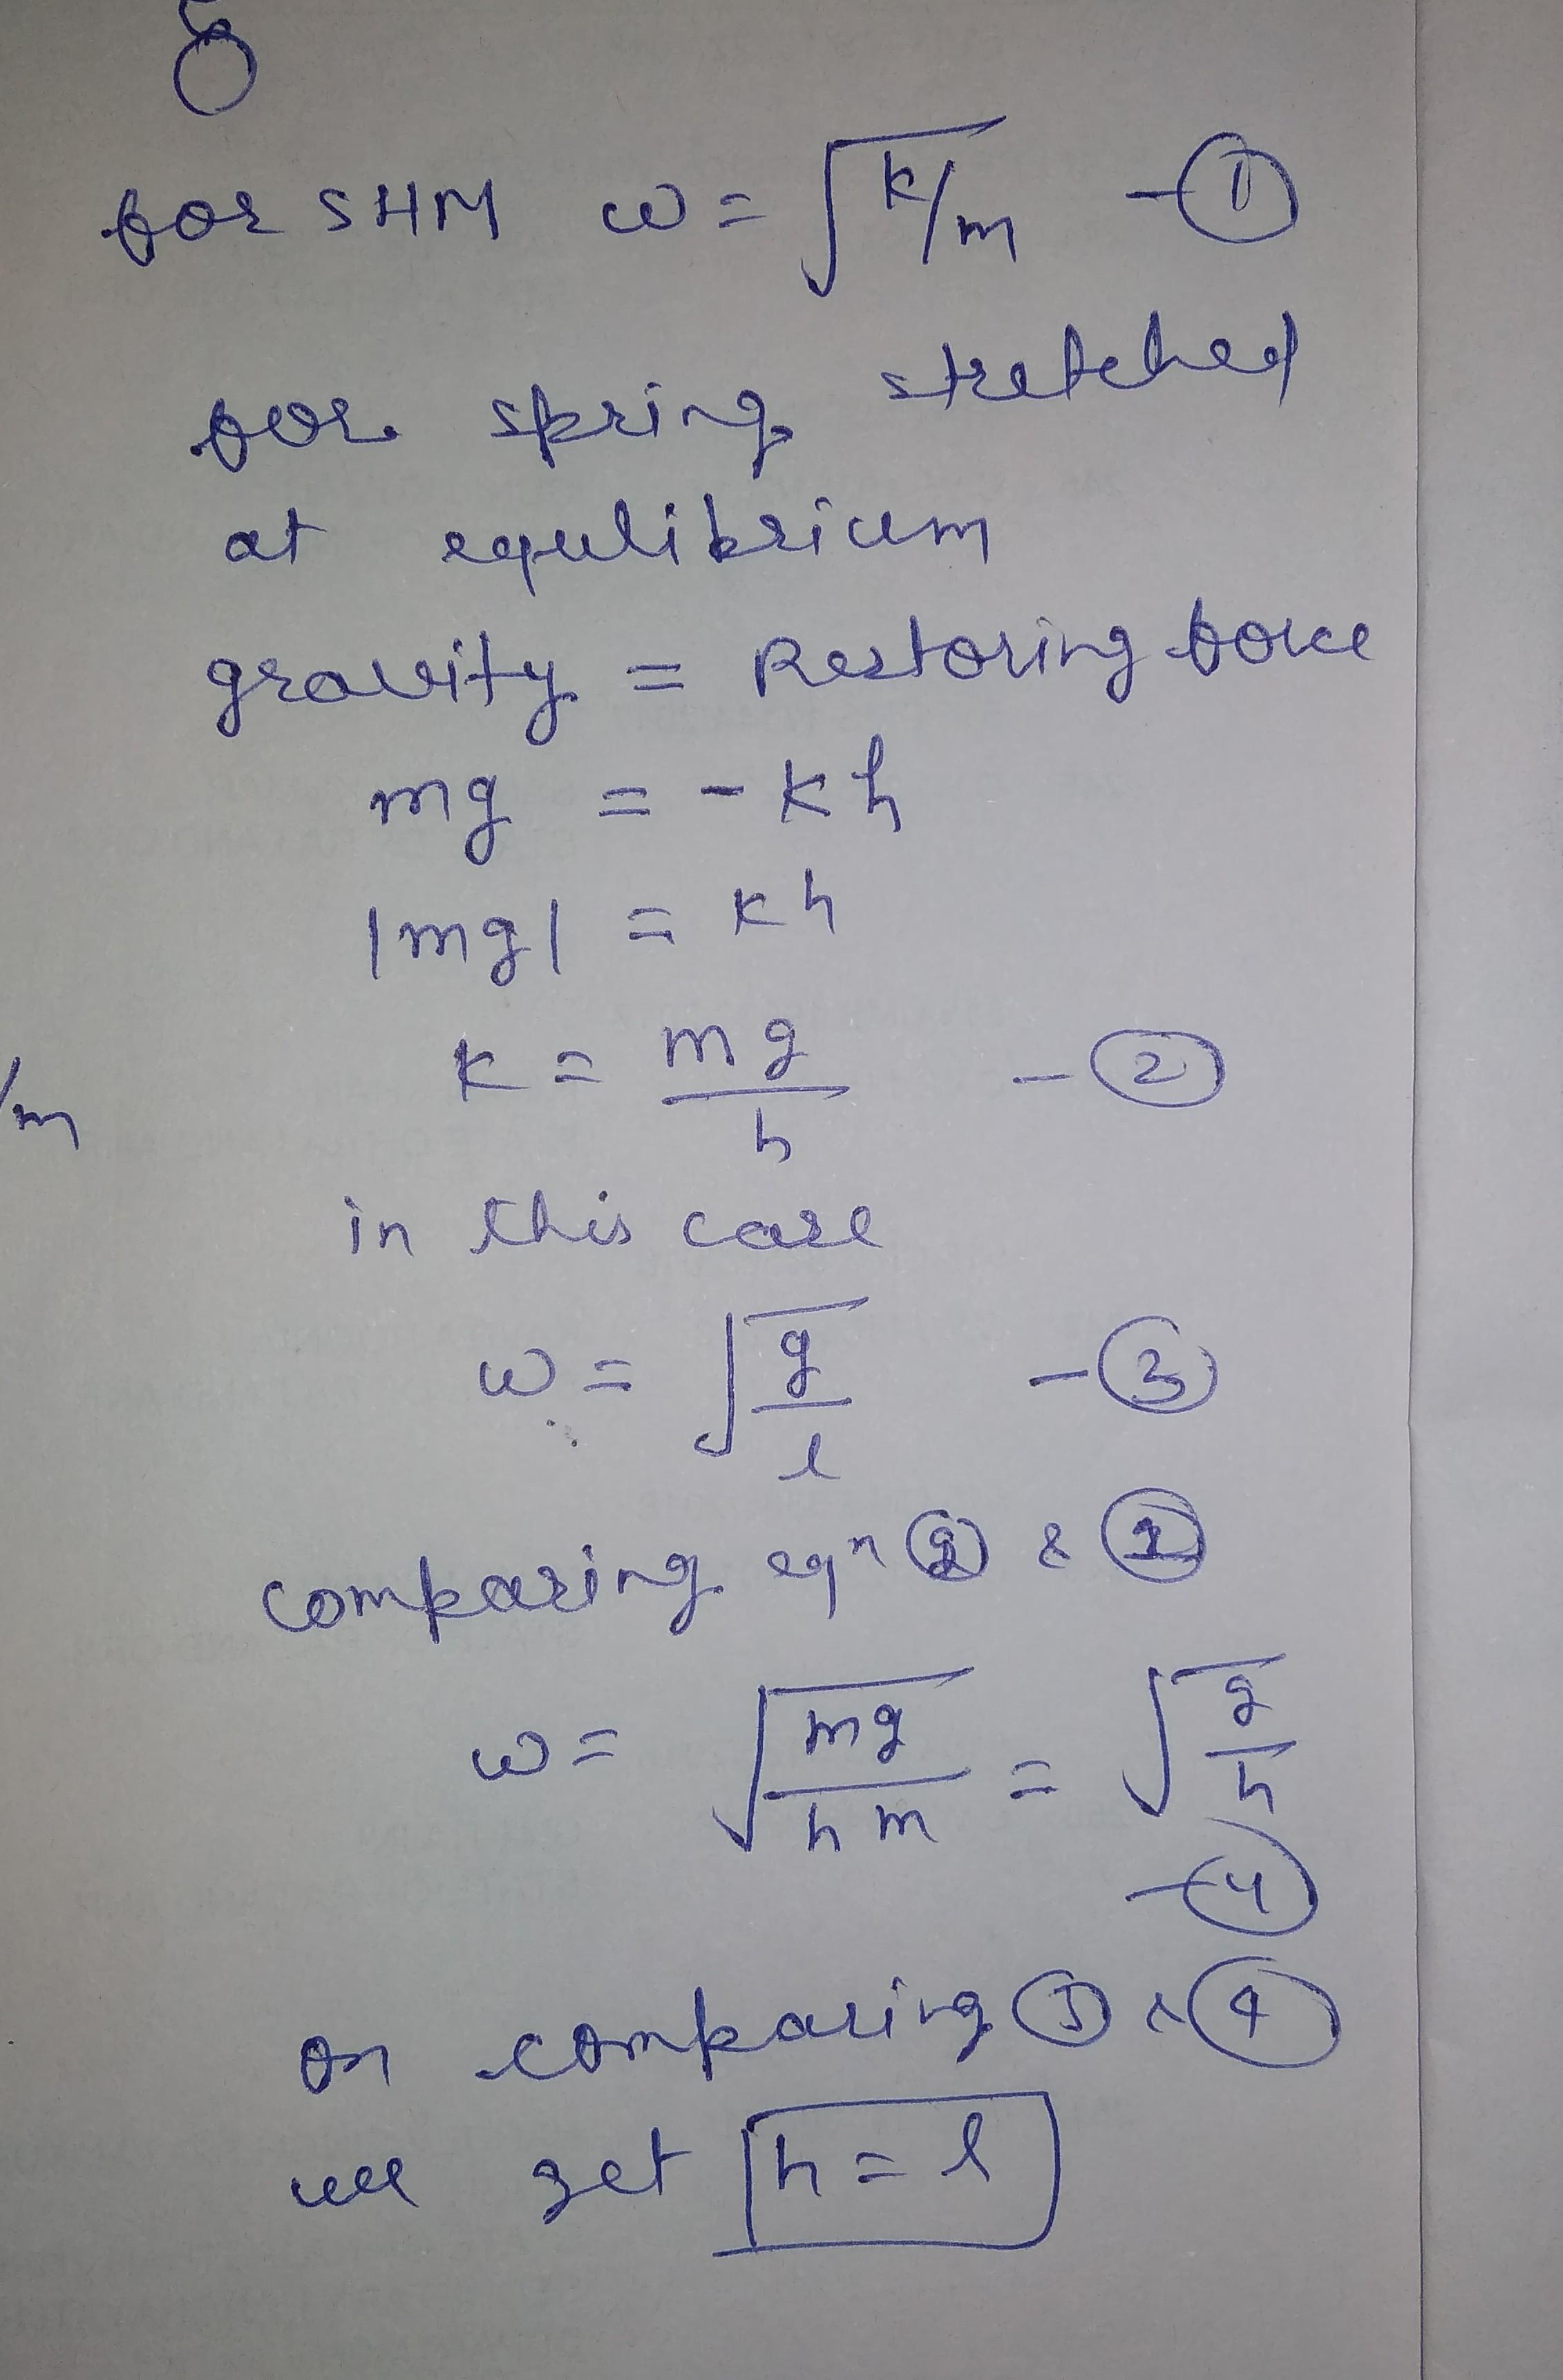 8
for SHM ω = √k/m - ①
for spring stretched
at equlibrium
gravity = Restoring force
mg = - kh
|mg| = kh
k = mg/h - ②
/m
in this case
ω = √g/l - ③
comparing eqⁿ ② & ①
ω = √mg/hm = √g/h
- ④
on comparing ③ & ④
we get h = l